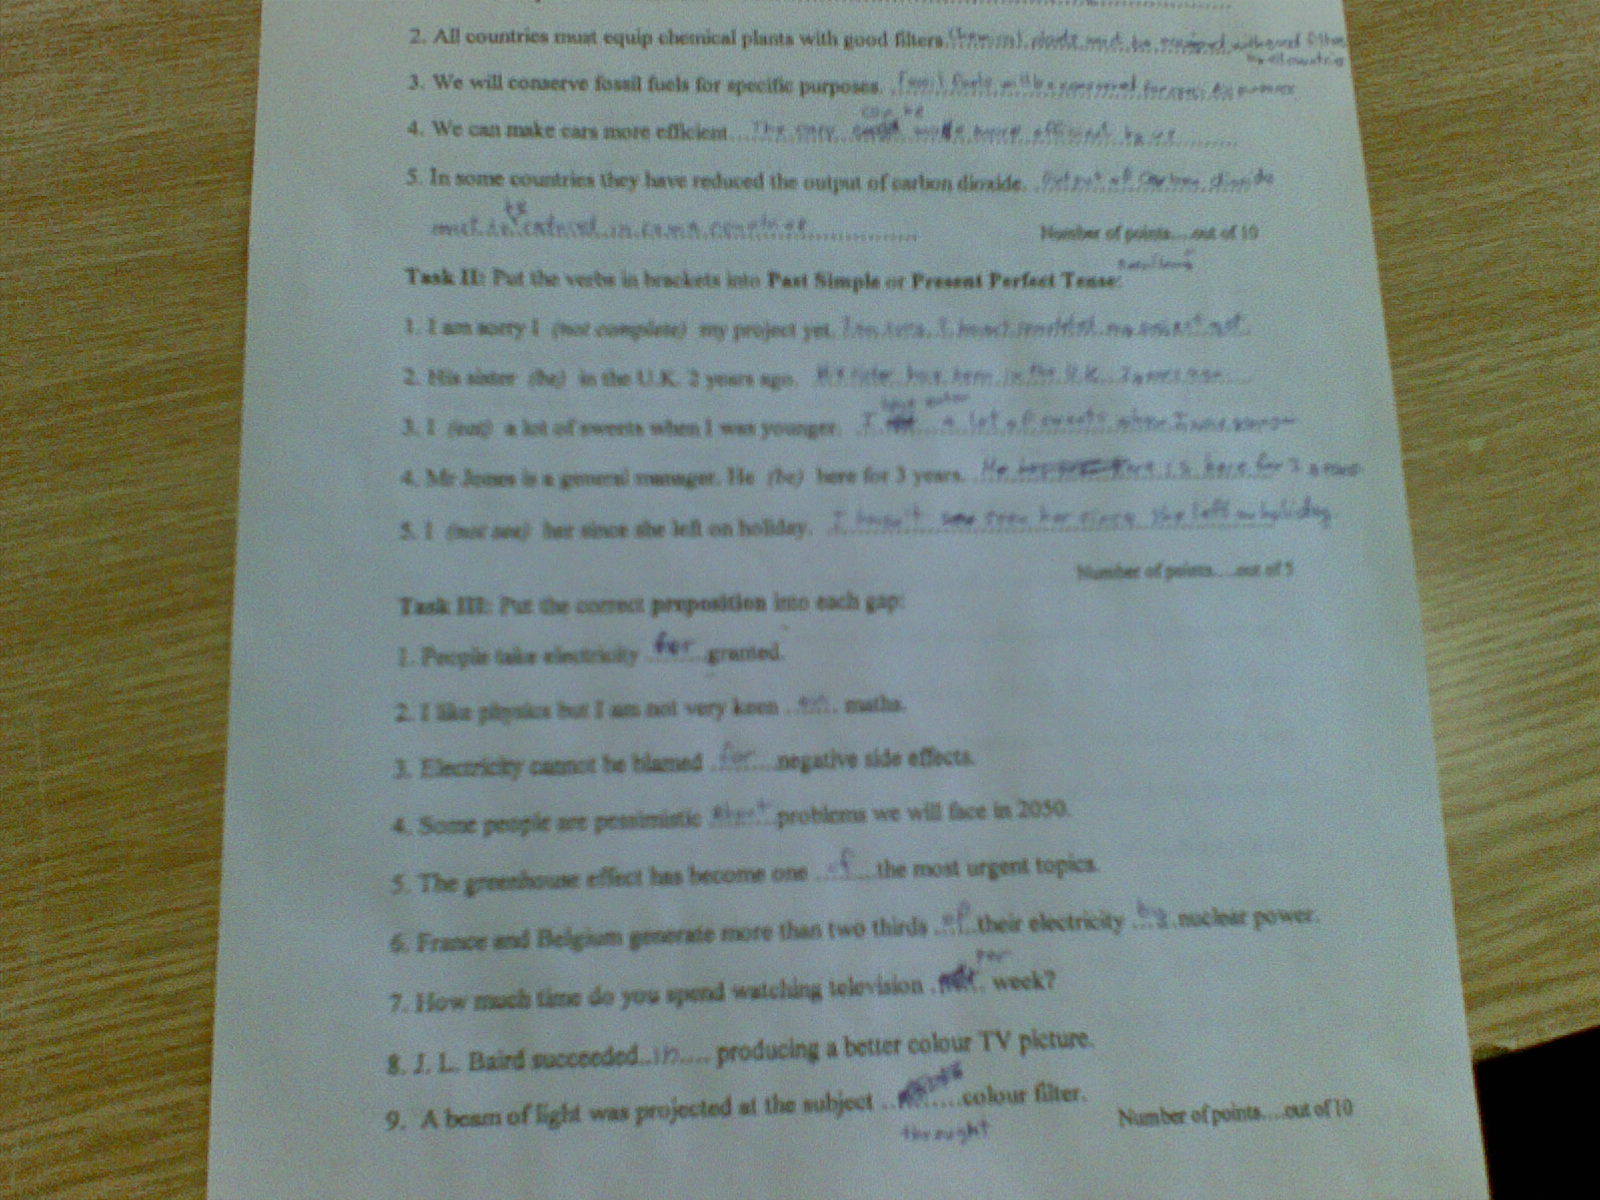 2. All countries must equip chemical plants with good filters. Chemical plants must be equiped with good filters
3. We will conserve fossil fuels for specific purposes. Fossil fuels will be conserved for specific purposes
can be
4. We can make cars more efficient. The cars made more efficient by us
5. In some countries they have reduced the output of carbon dioxide. Output of carbon dioxide
be
must in some countries Number of points....out of 10
Task II: Put the verbs in brackets into Past Simple or Present Perfect Tense:
1. I am sorry I (not complete) my project yet. I am sorry I haven't completed my project yet
2. His sister (be) in the U.K. 2 years ago. His sister has been in the U.K. 2 years ago
have eaten
3. I (eat) a lot of sweets when I was younger. I a lot of sweets when I was younger
4. Mr Jones is a general manager. He (be) here for 3 years. He is here for 3 years
5. I (not see) her since she left on holiday. I haven't seen her since she left on holiday
Number of points....out of 5
Task III: Put the correct preposition into each gap:
1. People take electricity for granted.
2. I like physics but I am not very keen on maths.
3. Electricity cannot be blamed for negative side effects.
4. Some people are pessimistic about problems we will face in 2050.
5. The greenhouse effect has become one of the most urgent topics.
6. France and Belgium generate more than two thirds of their electricity by nuclear power.
per
7. How much time do you spend watching television week?
8. J. L. Baird succeeded in producing a better colour TV picture.
9. A beam of light was projected at the subject colour filter.
throught Number of points....out of 10